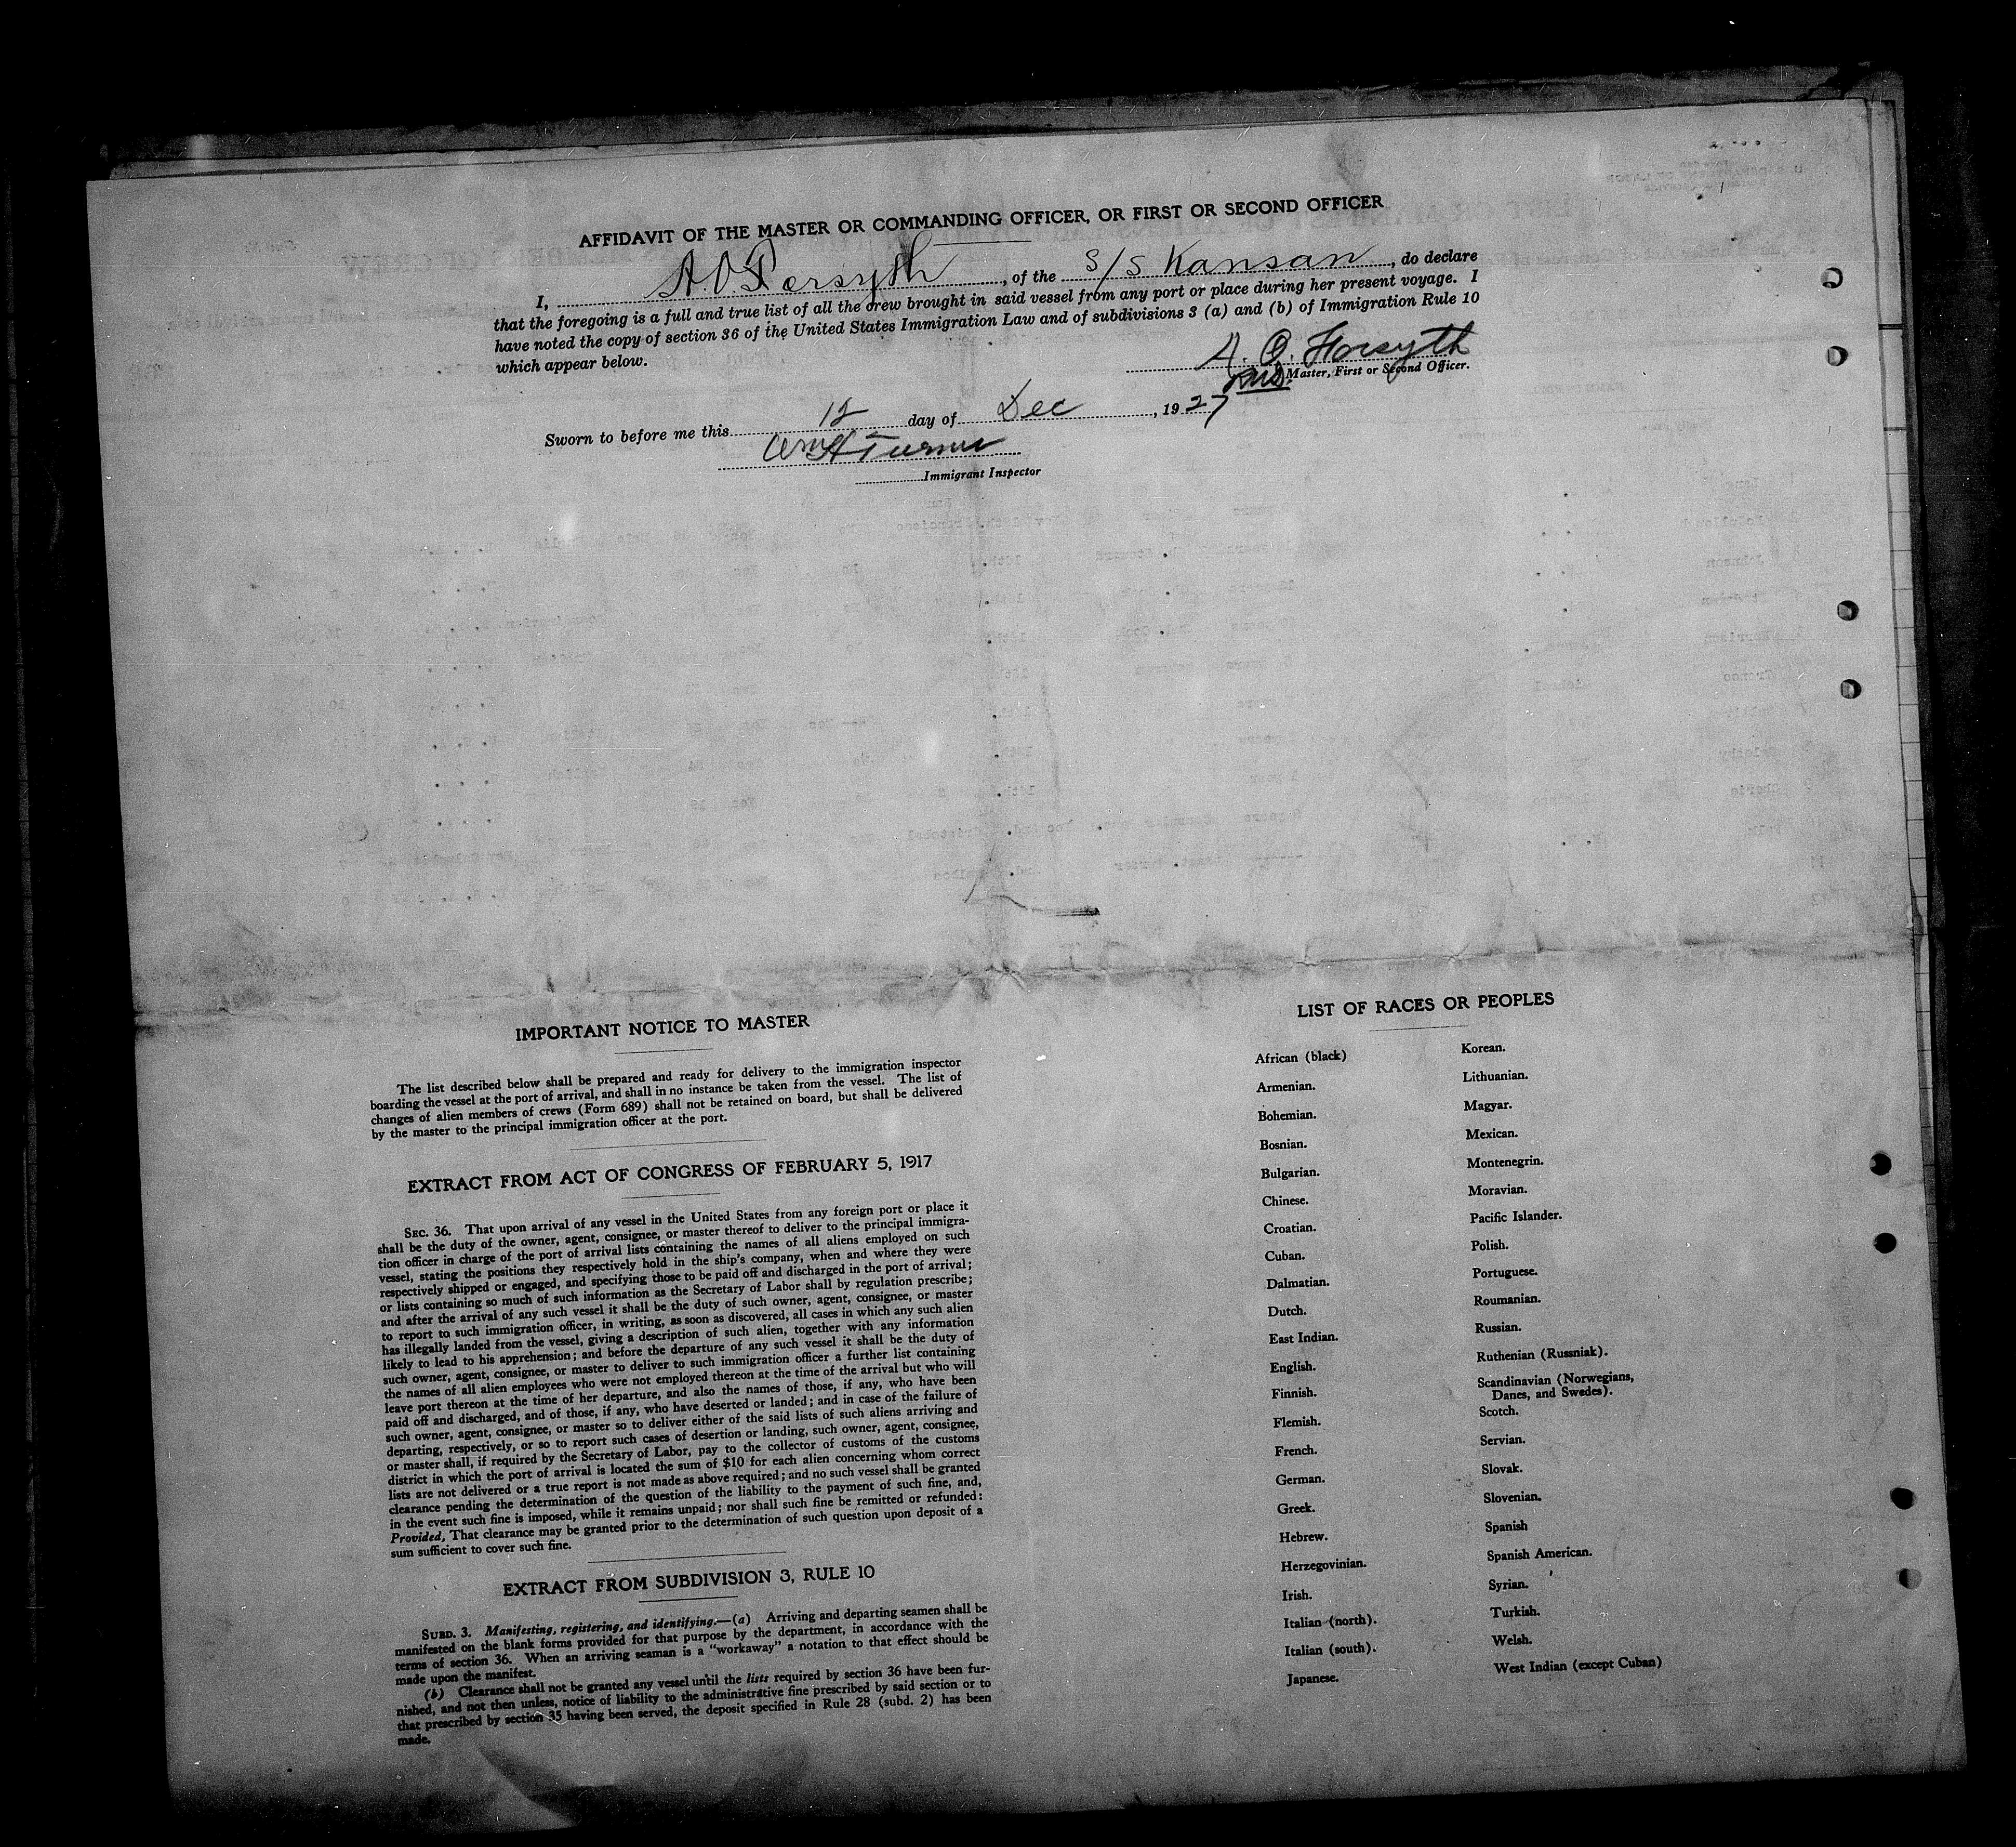 AFFIDAVIT OF THE MASTER OR COMMANDING OFFICER, OR FIRST OR SECOND OFFICER
I, A. O. Forsyth, of the S/S Kansan, do declare
that the foregoing is a full and true list of all the crew brought in said vessel from any port or place during her present voyage. I
have noted the copy of section 36 of the United States Immigration Law and of subdivisions 3 (a) and (b) of Immigration Rule 10
which appear below.
A. O. Forsyth
Master, First or Second Officer.
Sworn to before me this 12 day of Dec, 1927
Wm H Turner
Immigrant Inspector
IMPORTANT NOTICE TO MASTER
The list described below shall be prepared and ready for delivery to the immigration inspector
boarding the vessel at the port of arrival, and shall in no instance be taken from the vessel. The list of
changes of alien members of crews (Form 689) shall not be retained on board, but shall be delivered
by the master to the principal immigration officer at the port.
EXTRACT FROM ACT OF CONGRESS OF FEBRUARY 5, 1917
SEC. 36. That upon arrival of any vessel in the United States from any foreign port or place it
shall be the duty of the owner, agent, consignee, or master thereof to deliver to the principal immigra-
tion officer in charge of the port of arrival lists containing the names of all aliens employed on such
vessel, stating the positions they respectively hold in the ship's company, when and where they were
respectively shipped or engaged, and specifying those to be paid off and discharged in the port of arrival;
or lists containing so much of such information as the Secretary of Labor shall by regulation prescribe;
and after the arrival of any such vessel it shall be the duty of such owner, agent, consignee, or master
to report to such immigration officer, in writing, as soon as discovered, all cases in which any such alien
has illegally landed from the vessel, giving a description of such alien, together with any information
likely to lead to his apprehension; and before the departure of any such vessel it shall be the duty of
such owner, agent, consignee, or master to deliver to such immigration officer a further list containing
the names of all alien employees who were not employed thereon at the time of the arrival but who will
leave port thereon at the time of her departure, and also the names of those, if any, who have been
paid off and discharged, and of those, if any, who have deserted or landed; and in case of the failure of
such owner, agent, consignee, or master so to deliver either of the said lists of such aliens arriving and
departing, respectively, or so to report such cases of desertion or landing, such owner, agent, consignee,
or master shall, if required by the Secretary of Labor, pay to the collector of customs of the customs
district in which the port of arrival is located the sum of $10 for each alien concerning whom correct
lists are not delivered or a true report is not made as above required; and no such vessel shall be granted
clearance pending the determination of the question of the liability to the payment of such fine, and,
in the event such fine is imposed, while it remains unpaid; nor shall such fine be remitted or refunded:
Provided, That clearance may be granted prior to the determination of such question upon deposit of a
sum sufficient to cover such fine.
EXTRACT FROM SUBDIVISION 3, RULE 10
SUBD. 3. Manifesting, registering, and identifying.—(a) Arriving and departing seamen shall be
manifested on the blank forms provided for that purpose by the department, in accordance with the
terms of section 36. When an arriving seaman is a "workaway" a notation to that effect should be
made upon the manifest.
(b) Clearance shall not be granted any vessel until the lists required by section 36 have been fur-
nished, and not then unless, notice of liability to the administrative fine prescribed by said section or to
that prescribed by section 35 having been served, the deposit specified in Rule 28 (subd. 2) has been
made.
LIST OF RACES OR PEOPLES
African (black)
Armenian.
Bohemian.
Bosnian.
Bulgarian.
Chinese.
Croatian.
Cuban.
Dalmatian.
Dutch.
East Indian.
English.
Finnish.
Flemish.
French.
German.
Greek.
Hebrew.
Herzegovinian.
Irish.
Italian (north).
Italian (south).
Japanese.
Korean.
Lithuanian.
Magyar.
Mexican.
Montenegrin.
Moravian.
Pacific Islander.
Polish.
Portuguese.
Roumanian.
Russian.
Ruthenian (Russniak).
Scandinavian (Norwegians,
Danes, and Swedes).
Scotch.
Servian.
Slovak.
Slovenian.
Spanish
Spanish American.
Syrian.
Turkish.
Welsh.
West Indian (except Cuban)